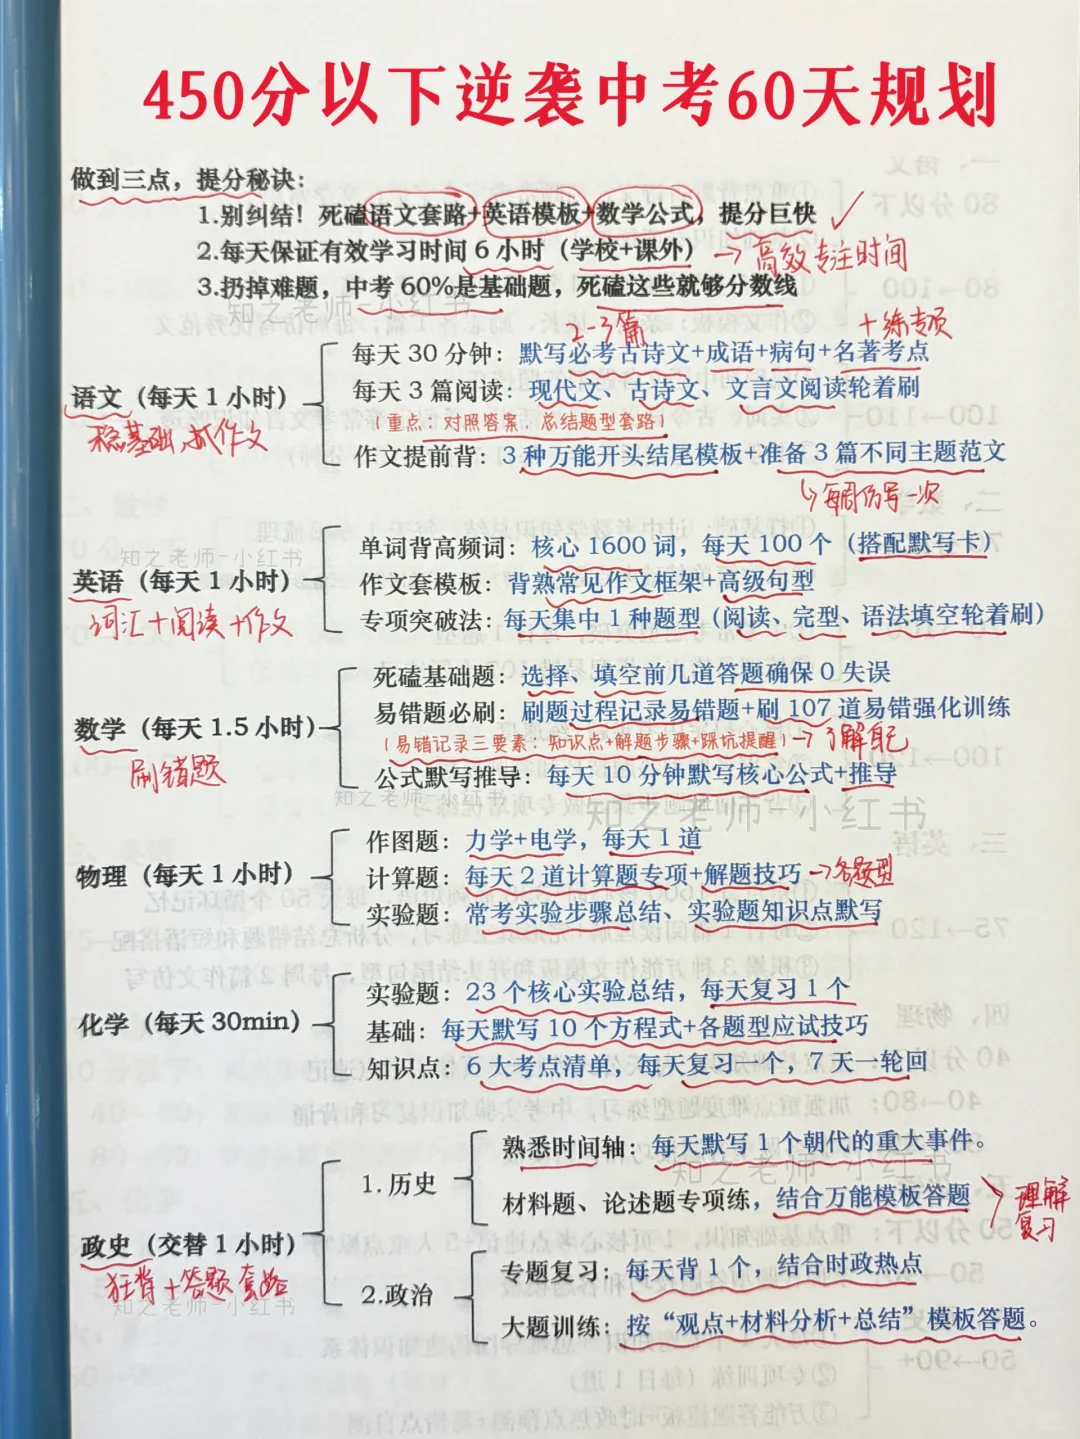 450分以下逆袭中考60天规划
做到三点，提分秘诀：
1.别纠结！死磕语文套路+英语模板+数学公式，提分巨快
2.每天保证有效学习时间6小时（学校+课外）→高效专注时间
3.扔掉难题，中考60%是基础题，死磕这些就够分数线
知之老师-小红书
2-3篇
+练专项
语文（每天1小时）
稳基础，抓作文
每天30分钟：默写必考古诗文+成语+病句+名著考点
每天3篇阅读：现代文、古诗文、文言文阅读轮着刷
（重点：对照答案，总结题型套路）
作文提前背：3种万能开头结尾模板+准备3篇不同主题范文
↳每周仿写一次
知之老师-小红书
英语（每天1小时）
词汇+阅读+作文
单词背高频词：核心1600词，每天100个（搭配默写卡）
作文套模板：背熟常见作文框架+高级句型
专项突破法：每天集中1种题型（阅读、完型、语法填空轮着刷）
数学（每天1.5小时）
刷错题
死磕基础题：选择、填空前几道答题确保0失误
易错题必刷：刷题过程记录易错题+刷107道易错强化训练
（易错记录三要素：知识点+解题步骤+踩坑提醒）→了解自己
公式默写推导：每天10分钟默写核心公式+推导
知之老师-小红书
知之老师-小红书
物理（每天1小时）
作图题：力学+电学，每天1道
计算题：每天2道计算题专项+解题技巧→各题型
实验题：常考实验步骤总结、实验题知识点默写
化学（每天30min）
实验题：23个核心实验总结，每天复习1个
基础：每天默写10个方程式+各题型应试技巧
知识点：6大考点清单，每天复习一个，7天一轮回
政史（交替1小时）
狂背+答题套路
知之老师-小红书
1.历史
熟悉时间轴：每天默写1个朝代的重大事件。
知之老师-小红书
材料题、论述题专项练，结合万能模板答题
理解
复习
2.政治
专题复习：每天背1个，结合时政热点
大题训练：按“观点+材料分析+总结”模板答题。